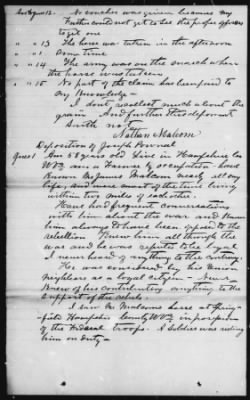 No voucher was given because my
Father could not get to see the proper officer
to get one
" " 13 The horse was taken in the afternoon
" " Some time
" " 14 The army was on the march when
the horse was taken
" " 15 No part of the claim has been paid to
my knowledge —
I dont recollect much about the
grain And further this deponent
saith not
Nathan Malcom
Deposition of Joseph Pownal
Ques 1 Am 58 years old Live in Hampshire Co
WVa am a Farmer by occupation have
Known Mr James Malcom nearly all my
life, and were most of the time living
within two miles of each other.
Have had frequent conversations
with him about the war and Knew
him always to have been opposed to the
rebellion Knew him all through the
war and he was reputed to be loyal
I never heard of anything to the contrary.
He was considered by his Union
neighbors as a loyal citizen — Never
Knew of his contributing anything to the
support of the rebels.
I saw Mr Malcoms horse at Spring-
field Hampshire County WVa in possession
of the Federal troops. A soldier was riding
him on duty —